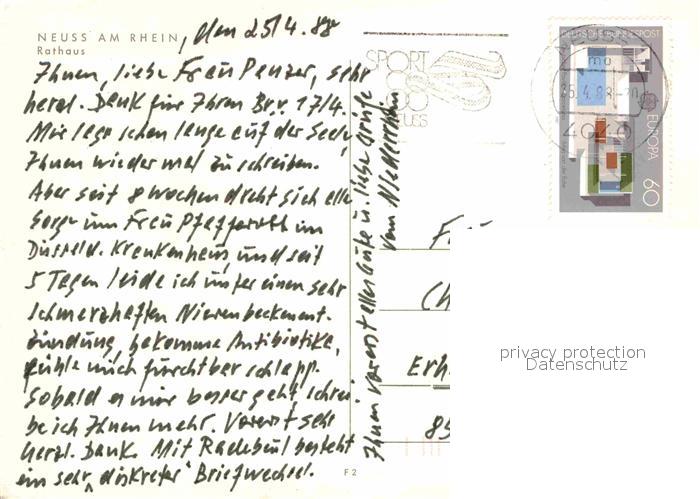 NEUSS AM RHEIN, den 25/4. 88
Rathaus
Ihnen, liebe Frau Penzer, sehr
herzl. Dank für Ihren Br. v. 17/4.
Mir lags schon lange auf der Seele
Ihnen wieder mal zu schreiben.
Aber seit 8 Wochen dreht sich alle
Sorge um Frau Pfaffaroth im
Düsseld. Krankenhaus und seit
5 Tagen leide ich unter einer sehr
schmerzhaften Nierenbeckenent-
zündung, bekomme Antibiotika,
fühle mich furchtbar schlapp.
Sobald es mir besser geht, schrei-
be ich Ihnen mehr. Vorerst sehr
herzl. Dank. Mit Radebeul besteht
ein sehr "diskreter" Briefwechsel.
Ihnen vorerst alles Gute u. liebe Grüße
vom Niederrhein
F 2
SPORT
NEUSS
25.4.88-20
4040
DEUTSCHE BUNDESPOST
EUROPA
60
Ch
Erh
85
privacy protection
Datenschutz